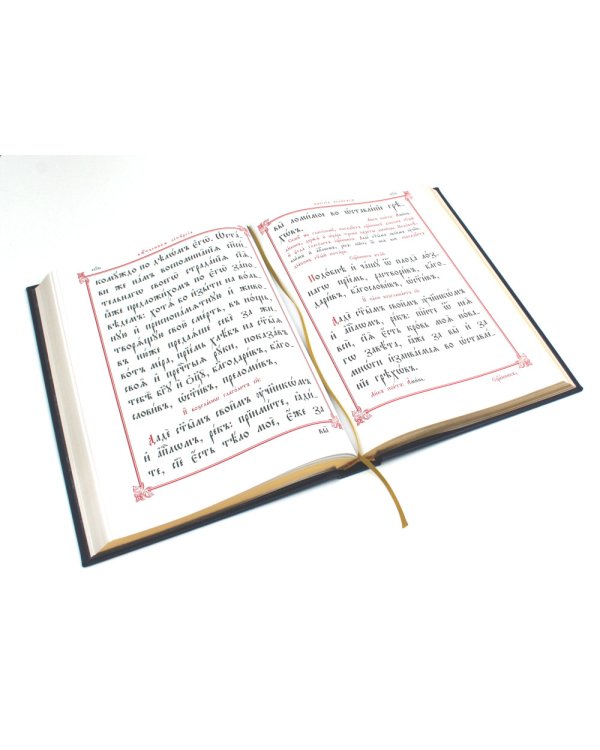 комꙋ́ждо по дѣлѡ́мъ є҆гѡ̀. Ѡ҆ста́-
ви же на́мъ воспомина̑нїѧ сп҃си́-
тельнагѡ своегѡ̀ страда́нїѧ сїѧ̑,
ꙗ҆̀же предложи́хомъ по є҆гѡ̀ за́по-
вѣдемъ: хотѧ́ бо и҆зы́ти на во́ль-
нꙋю и҆ приснопа́мѧтнꙋю и҆ живо-
творѧ́щꙋю свою̀ сме́рть, въ но́щь,
въ ню́же предаѧ́ше себѐ за жи-
во́тъ мі́ра, прїи́мъ хлѣ́бъ на ст҃ы̑ѧ
своѧ̑ и҆ пречⷭ҇тыѧ рꙋ́ки, показа́въ
тебѣ̀ бг҃ꙋ и҆ ѻ҆ц҃ꙋ̀, благодари́въ, бл҃го-
слови́въ, ѡ҆ст҃и́въ, преломи́въ,
И҆ возглаше́нїю глаго́летъ сїѐ:
Дадѐ ст҃ы̑мъ свои̑мъ ᲂу҆чн҃кѡ́мъ
и҆ а҆пⷭ҇лѡмъ, ре́къ: прїими́те, ꙗ҆ди́-
те, сїѐ є҆́сть тѣ́ло моѐ, є҆́же за
вы̀
вы̀ ломи́мое во ѡ҆ставле́нїе грѣ-
хѡ́въ.
Подо́бнѣ и҆ ча́шꙋ ѿ плода̀ ло́з-
нагѡ прїи́мъ, раствори́въ, бл҃го-
дари́въ, бл҃гослови́въ, ѡ҆ст҃и́въ.
Дадѐ ст҃ы̑мъ свои̑мъ ᲂу҆чн҃кѡ́мъ
и҆ а҆пⷭ҇лѡмъ, ре́къ: пі́йте ѿ неѧ̀
всѝ, сїѧ̀ є҆́сть кро́вь моѧ̀ но́ва-
гѡ завѣ́та, ꙗ҆́же за вы̀ и҆ за
мнѡ́ги и҆злива́емаѧ во ѡ҆ставле́-
нїе грѣхѡ́въ.